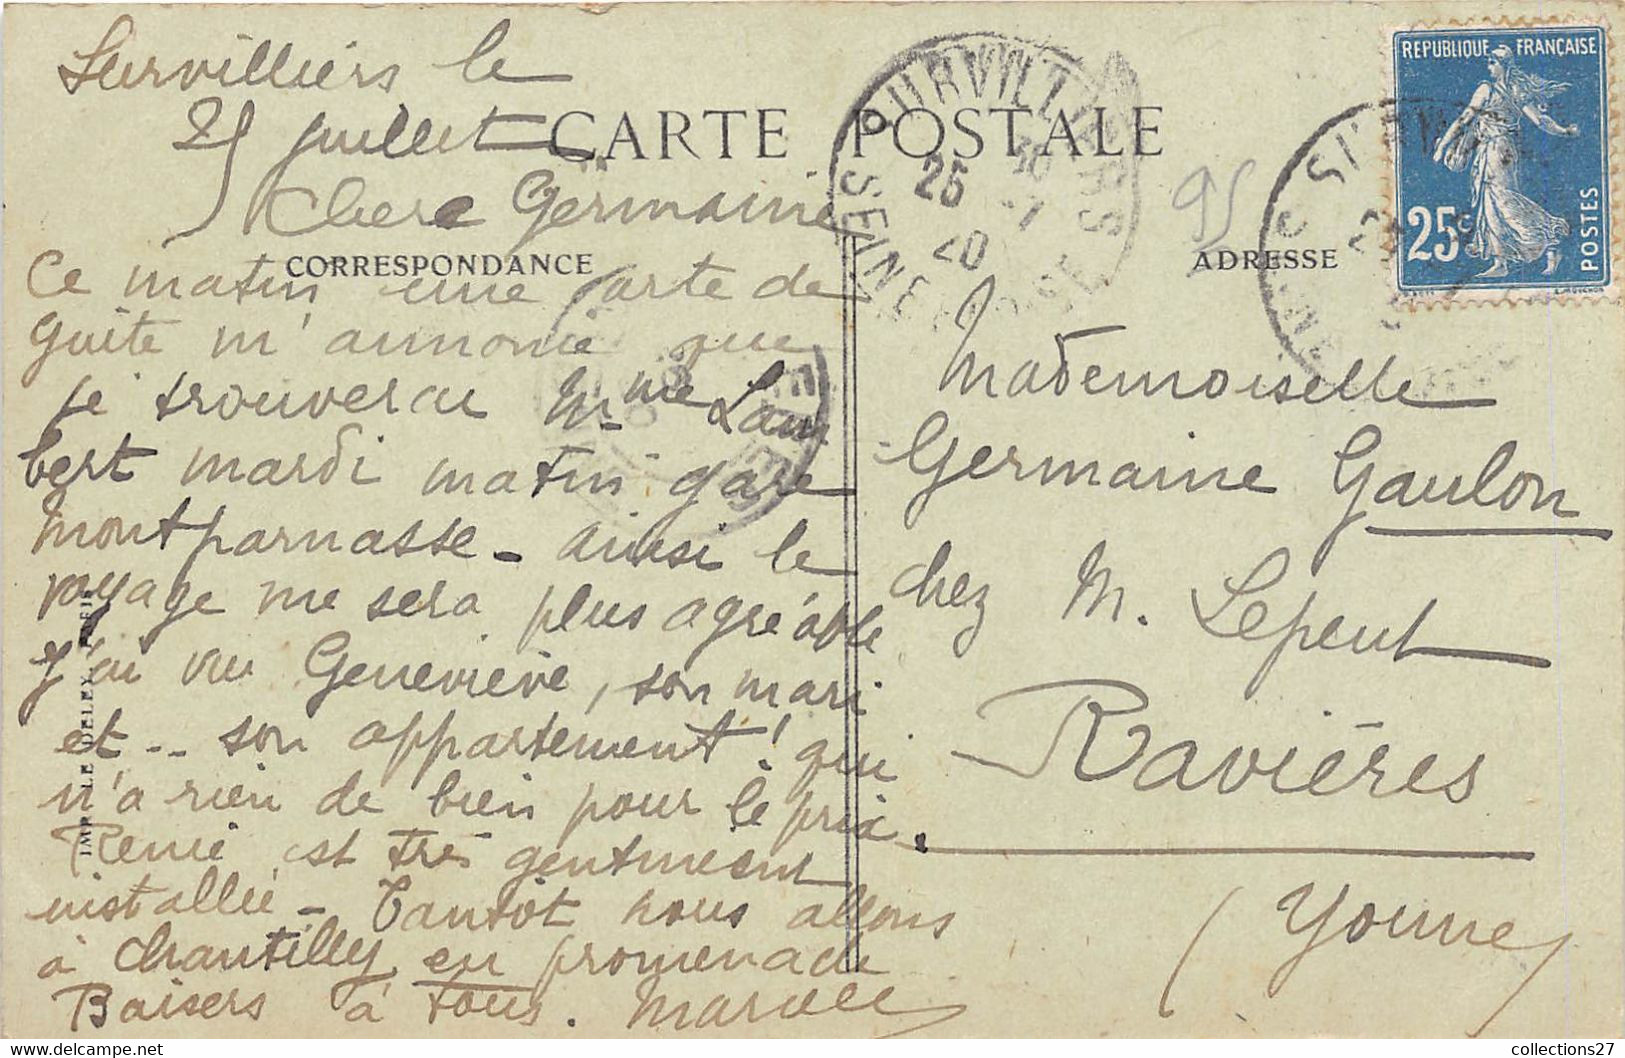 Survilliers le
25 juillet
CARTE POSTALE
Chere Germaine
CORRESPONDANCE
Ce matin une carte de
Guite m'annonce que
je trouverai Mme Lam
bert mardi matin gare
Montparnasse - ainsi le
voyage me sera plus agréable
J'ai vu Geneviève, son mari
et .. son appartement ! qui
n'a rien de bien pour le prix.
Renée est très gentiment
installée - Tantôt nous allons
à Chantilly en promenade
Baisers à tous.
IMP. LE DELEY, PARIS
SURVILLIERS
25 -7 20
SEINE
95
ADRESSE
REPUBLIQUE FRANÇAISE
25c
POSTES
Mademoiselle
Germaine Gaulon
chez M. Lepeut
Ravières
(Yonne)
collections27